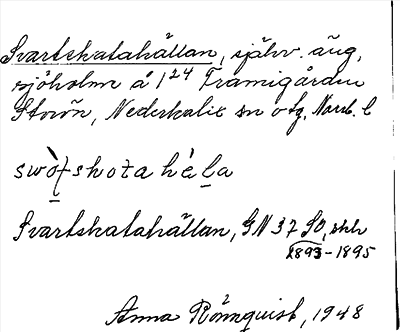 Svartskatahällan, självv. äng,
sjöholm å 1 24 Framigården
Storön, Nederkalix sn o tg, Norrb. l
swòtskota hèla
Svartskatahällan, GN 37 SO, skh
1893-1895
Anna Rönnquist, 1948